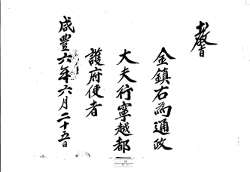 教旨
金鎮右為通政
大夫行寧越都
護府使者
咸豐六年六月二十五日